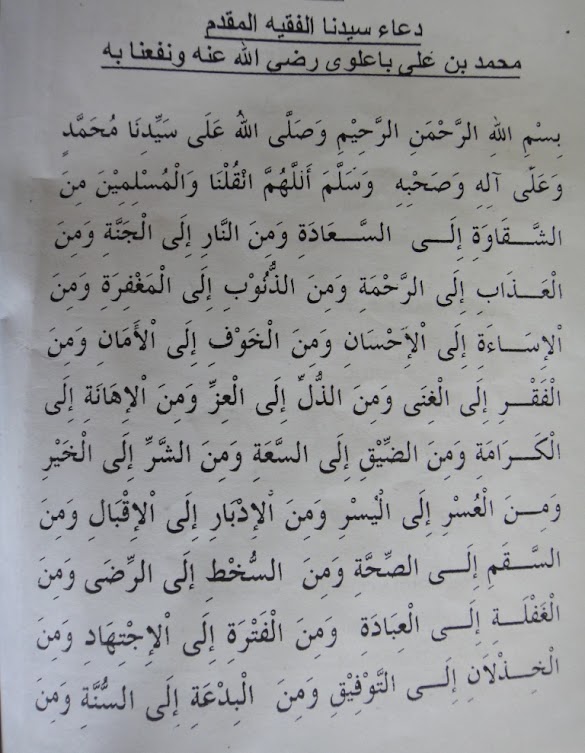 دعاء سيدنا الفقيه المقدم
محمد بن علي باعلوى رضي الله عنه ونفعنا به
بِسْمِ اللهِ الرَّحْمَنِ الرَّحِيْمِ وَصَلَّى اللهُ عَلَى سَيِّدِنَا مُحَمَّدٍ
وَعَلَى آلِهِ وَصَحْبِهِ وَسَلَّمَ اَللَّهُمَّ انْقُلْنَا وَالْمُسْلِمِيْنَ مِنَ
الشَّقَاوَةِ إِلَــى السَّــعَادَةِ وَمِنَ النَّارِ إِلَى الْجَنَّةِ وَمِنَ
الْعَــذَابِ إِلَى الرَّحْمَةِ وَمِنَ الذُّنُوْبِ إِلَى الْمَغْفِرَةِ وَمِنَ
اْلإِسَــاءَةِ إِلَى اْلإِحْسَانِ وَمِنَ الْخَوْفِ إِلَى اْلأَمَانِ وَمِنَ
الْفَقْــرِ إِلَى الْغِنَى وَمِنَ الذُّلِّ إِلَى الْعِزِّ وَمِنَ اْلإِهَانَةِ إِلَى
الْكَــرَامَةِ وَمِنَ الضِّيْقِ إِلَى السَّعَةِ وَمِنَ الشَّرِّ إِلَى الْخَيْرِ
وَمِــنَ الْعُسْرِ إِلَى الْيُسْرِ وَمِنَ اْلإِدْبَارِ إِلَى اْلإِقْبَالِ وَمِنَ
السَّــقَمِ إِلَــى الصِّحَّةِ وَمِنَ السُّخْطِ إِلَى الرِّضَى وَمِنَ
الْغَفْلَــةِ إِلَــى الْعِبَادَةِ وَمِنَ الْفَتْرَةِ إِلَى اْلإِجْتِهَادِ وَمِنَ
الْخِــذْلاَنِ إِلَــى التَّوْفِيْقِ وَمِنَ الْبِدْعَةِ إِلَى السُّنَّةِ وَمِنَ